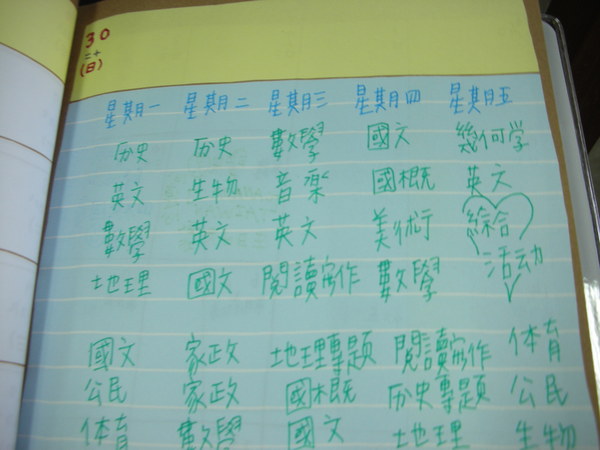 30
二十
(日)
星期一 星期二 星期三 星期四 星期五
历史 历史 數學 國文 幾何学
英文 生物 音樂 國概 英文
數學 英文 英文 美術 綜合活動
地理 國文 閱讀寫作 數學
國文 家政 地理專題 閱讀寫作 体育
公民 家政 國概 历史專題 公民
体育 數學 國文 地理 生物